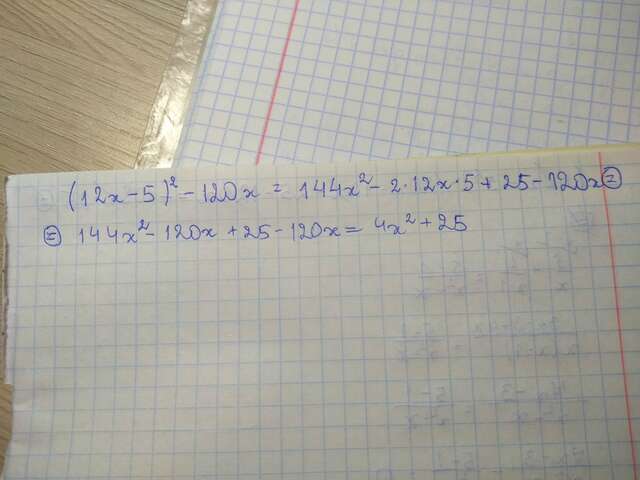 (12x-5)²-120x = 144x²-2·12x·5+25-120x=
= 144x²-120x+25-120x= 4x²+25